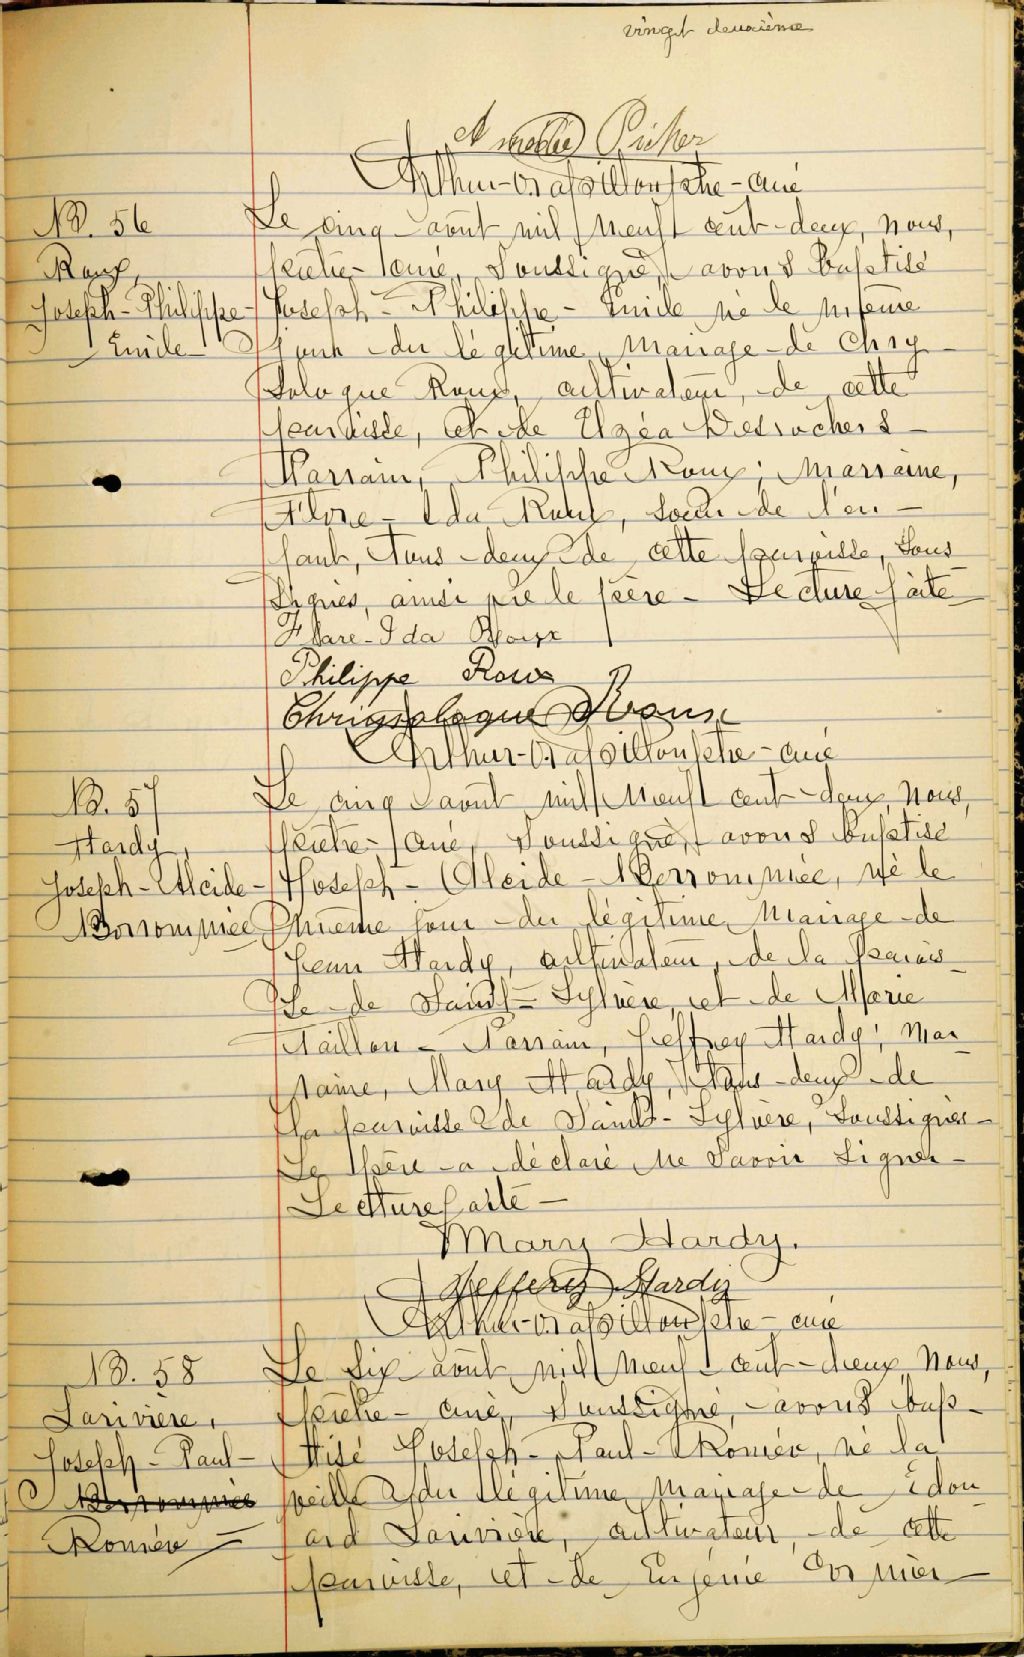 vingt deuxième
Amédée Picher
Arthur O. Papillon ptre-curé
No. 56
Roux,
Joseph-Philippe-
Emile-
Le cinq août mil neuf cent-deux, nous,
prêtre-curé, soussigné, avons baptisé
Joseph-Philippe-Emile né le même
jour du légitime mariage de Chry-
sologue Roux, cultivateur, de cette
paroisse, et de Elzéa Desrochers-
Parrain, Philippe Roux; marraine,
Flore-Ida Roux, sœur de l'en-
fant, tous deux de cette paroisse, sous
signés, ainsi que le père- Lecture faite-
Flore-Ida Roux
Philippe Roux
Chrysologue Roux
Arthur O. Papillon ptre-curé
No. 57
Hardy,
Joseph-Alcide-
Borrommée
Le cinq août mil neuf cent-deux, nous,
prêtre-curé, soussigné, avons baptisé
Joseph-Alcide-Borrommée, né le
même jour du légitime mariage de
Jean Hardy, cultivateur, de la parois-
se de Saint-Sylvère, et de Marie
Taillon- Parrain, Jeffrey Hardy; mar-
raine, Mary Hardy, tous deux de
la paroisse de Saint-Sylvère, soussignés-
Le père a déclaré ne savoir signer-
Lecture faite-
Mary Hardy.
Jeffery Hardy
Arthur O. Papillon ptre-curé
No. 58
Larivière,
Joseph-Paul-
Borrommée
Roméo
Le six août mil neuf cent-deux, nous,
prêtre-curé, soussigné, avons bap-
tisé Joseph-Paul-Roméo, né la
veille du légitime mariage de Edou
ard Larivière, cultivateur, de cette
paroisse, et de Eugénie Cormier-